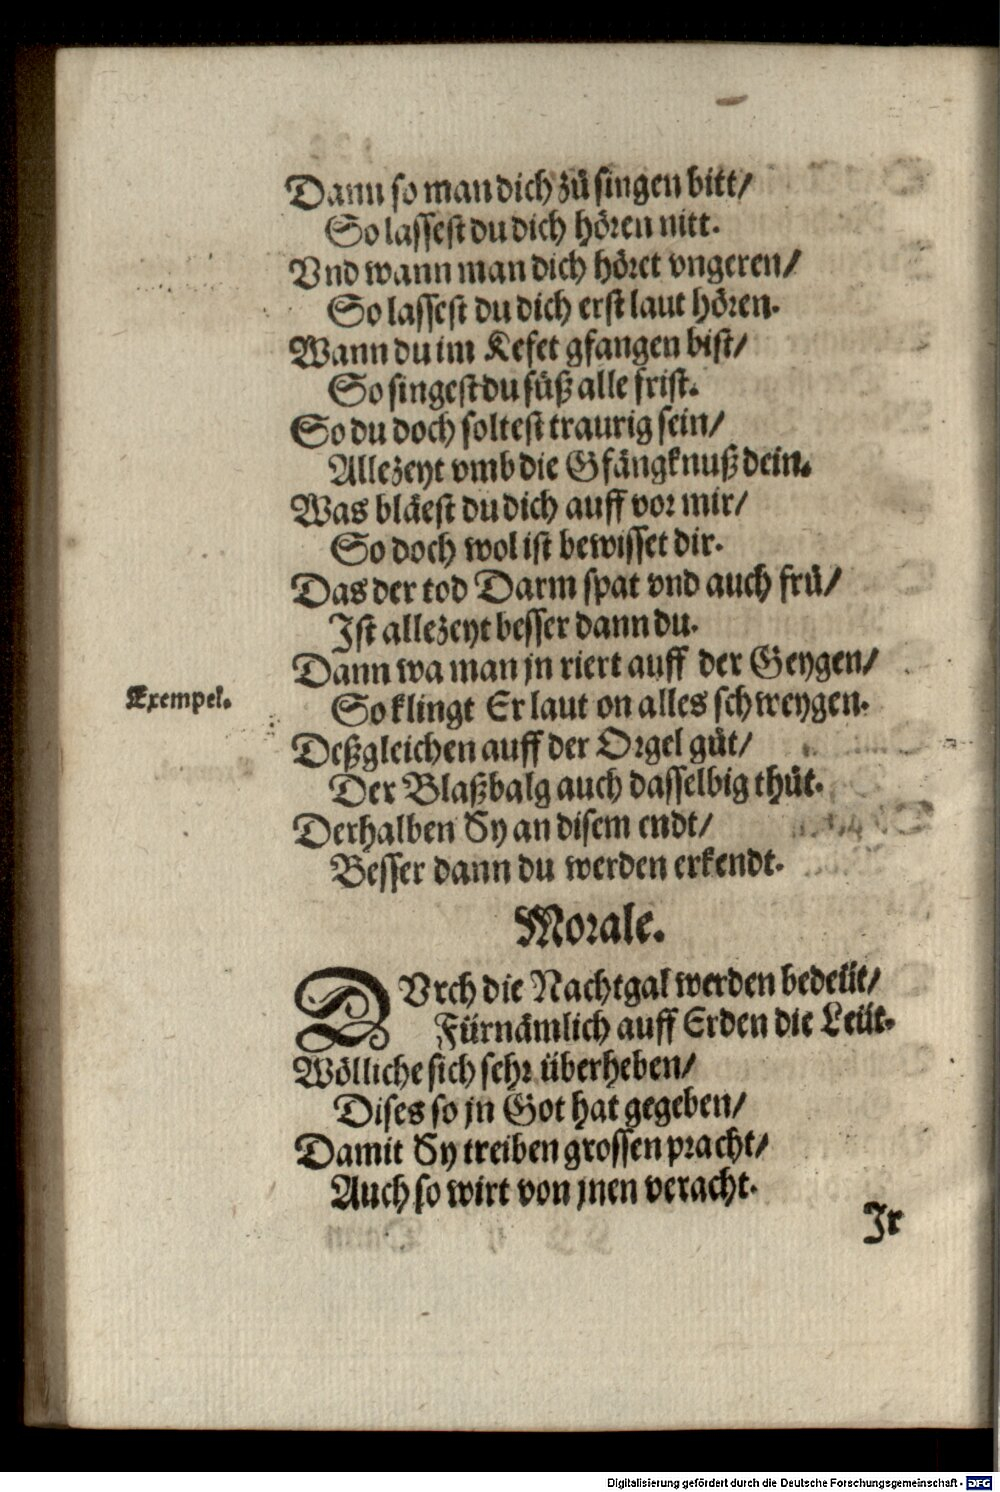 Dann so man dich zů singen bitt/
So lassest du dich hören nitt.
Vnd wann man dich höret vngeren/
So lassest du dich erst laut hören.
Wann du im Kefet gfangen bist/
So singest du süß alle frist.
So du doch soltest traurig sein/
Allezeyt vmb die Gfängknuß dein.
Was bläest du dich auff vor mir/
So doch wol ist bewisset dir.
Das der tod Darm spat vnd auch frü/
Ist allezeyt besser dann du.
Dann wa man jn riert auff der Geygen/
Exempel.
So klingt Er laut on alles schweygen.
Deßgleichen auff der Orgel gůt/
Der Blaßbalg auch dasselbig thůt.
Derhalben Sy an disem endt/
Besser dann du werden erkendt.
Morale.
DVrch die Nachtgal werden bedeüt/
Fürnämlich auff Erden die Leüt.
Wölliche sich sehr überheben/
Dises so jn Got hat gegeben/
Damit Sy treiben grossen pracht/
Auch so wirt von jnen veracht.
Ir
Digitalisierung gefördert durch die Deutsche Forschungsgemeinschaft - DFG